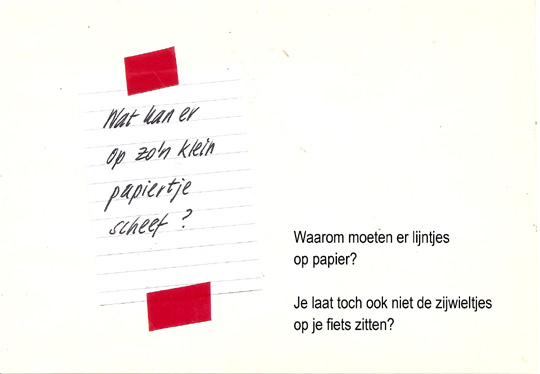 Wat kan er
op zo'n klein
papiertje
scheef?
Waarom moeten er lijntjes
op papier?
Je laat toch ook niet de zijwieltjes
op je fiets zitten?